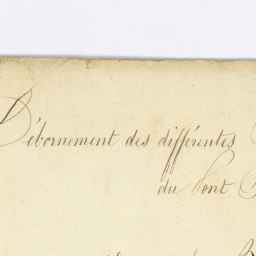 Débornement des différentes
du Pont